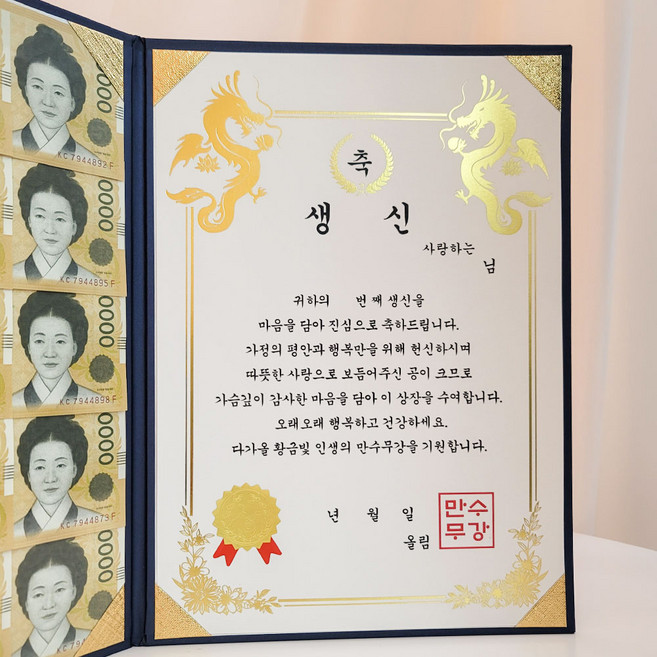 0000
KC 7944892 F
0000
KC 7944895 F
0000
KC 7944898 F
0000
KC 7944873 F
0000
축
생 신
사랑하는
님
귀하의 번째 생신을
마음을 담아 진심으로 축하드립니다.
가정의 평안과 행복만을 위해 헌신하시며
따뜻한 사랑으로 보듬어주신 공이 크므로
가슴깊이 감사한 마음을 담아 이 상장을 수여합니다.
오래오래 행복하고 건강하세요.
다가올 황금빛 인생의 만수무강을 기원합니다.
년 월 일
올림
만수
무강